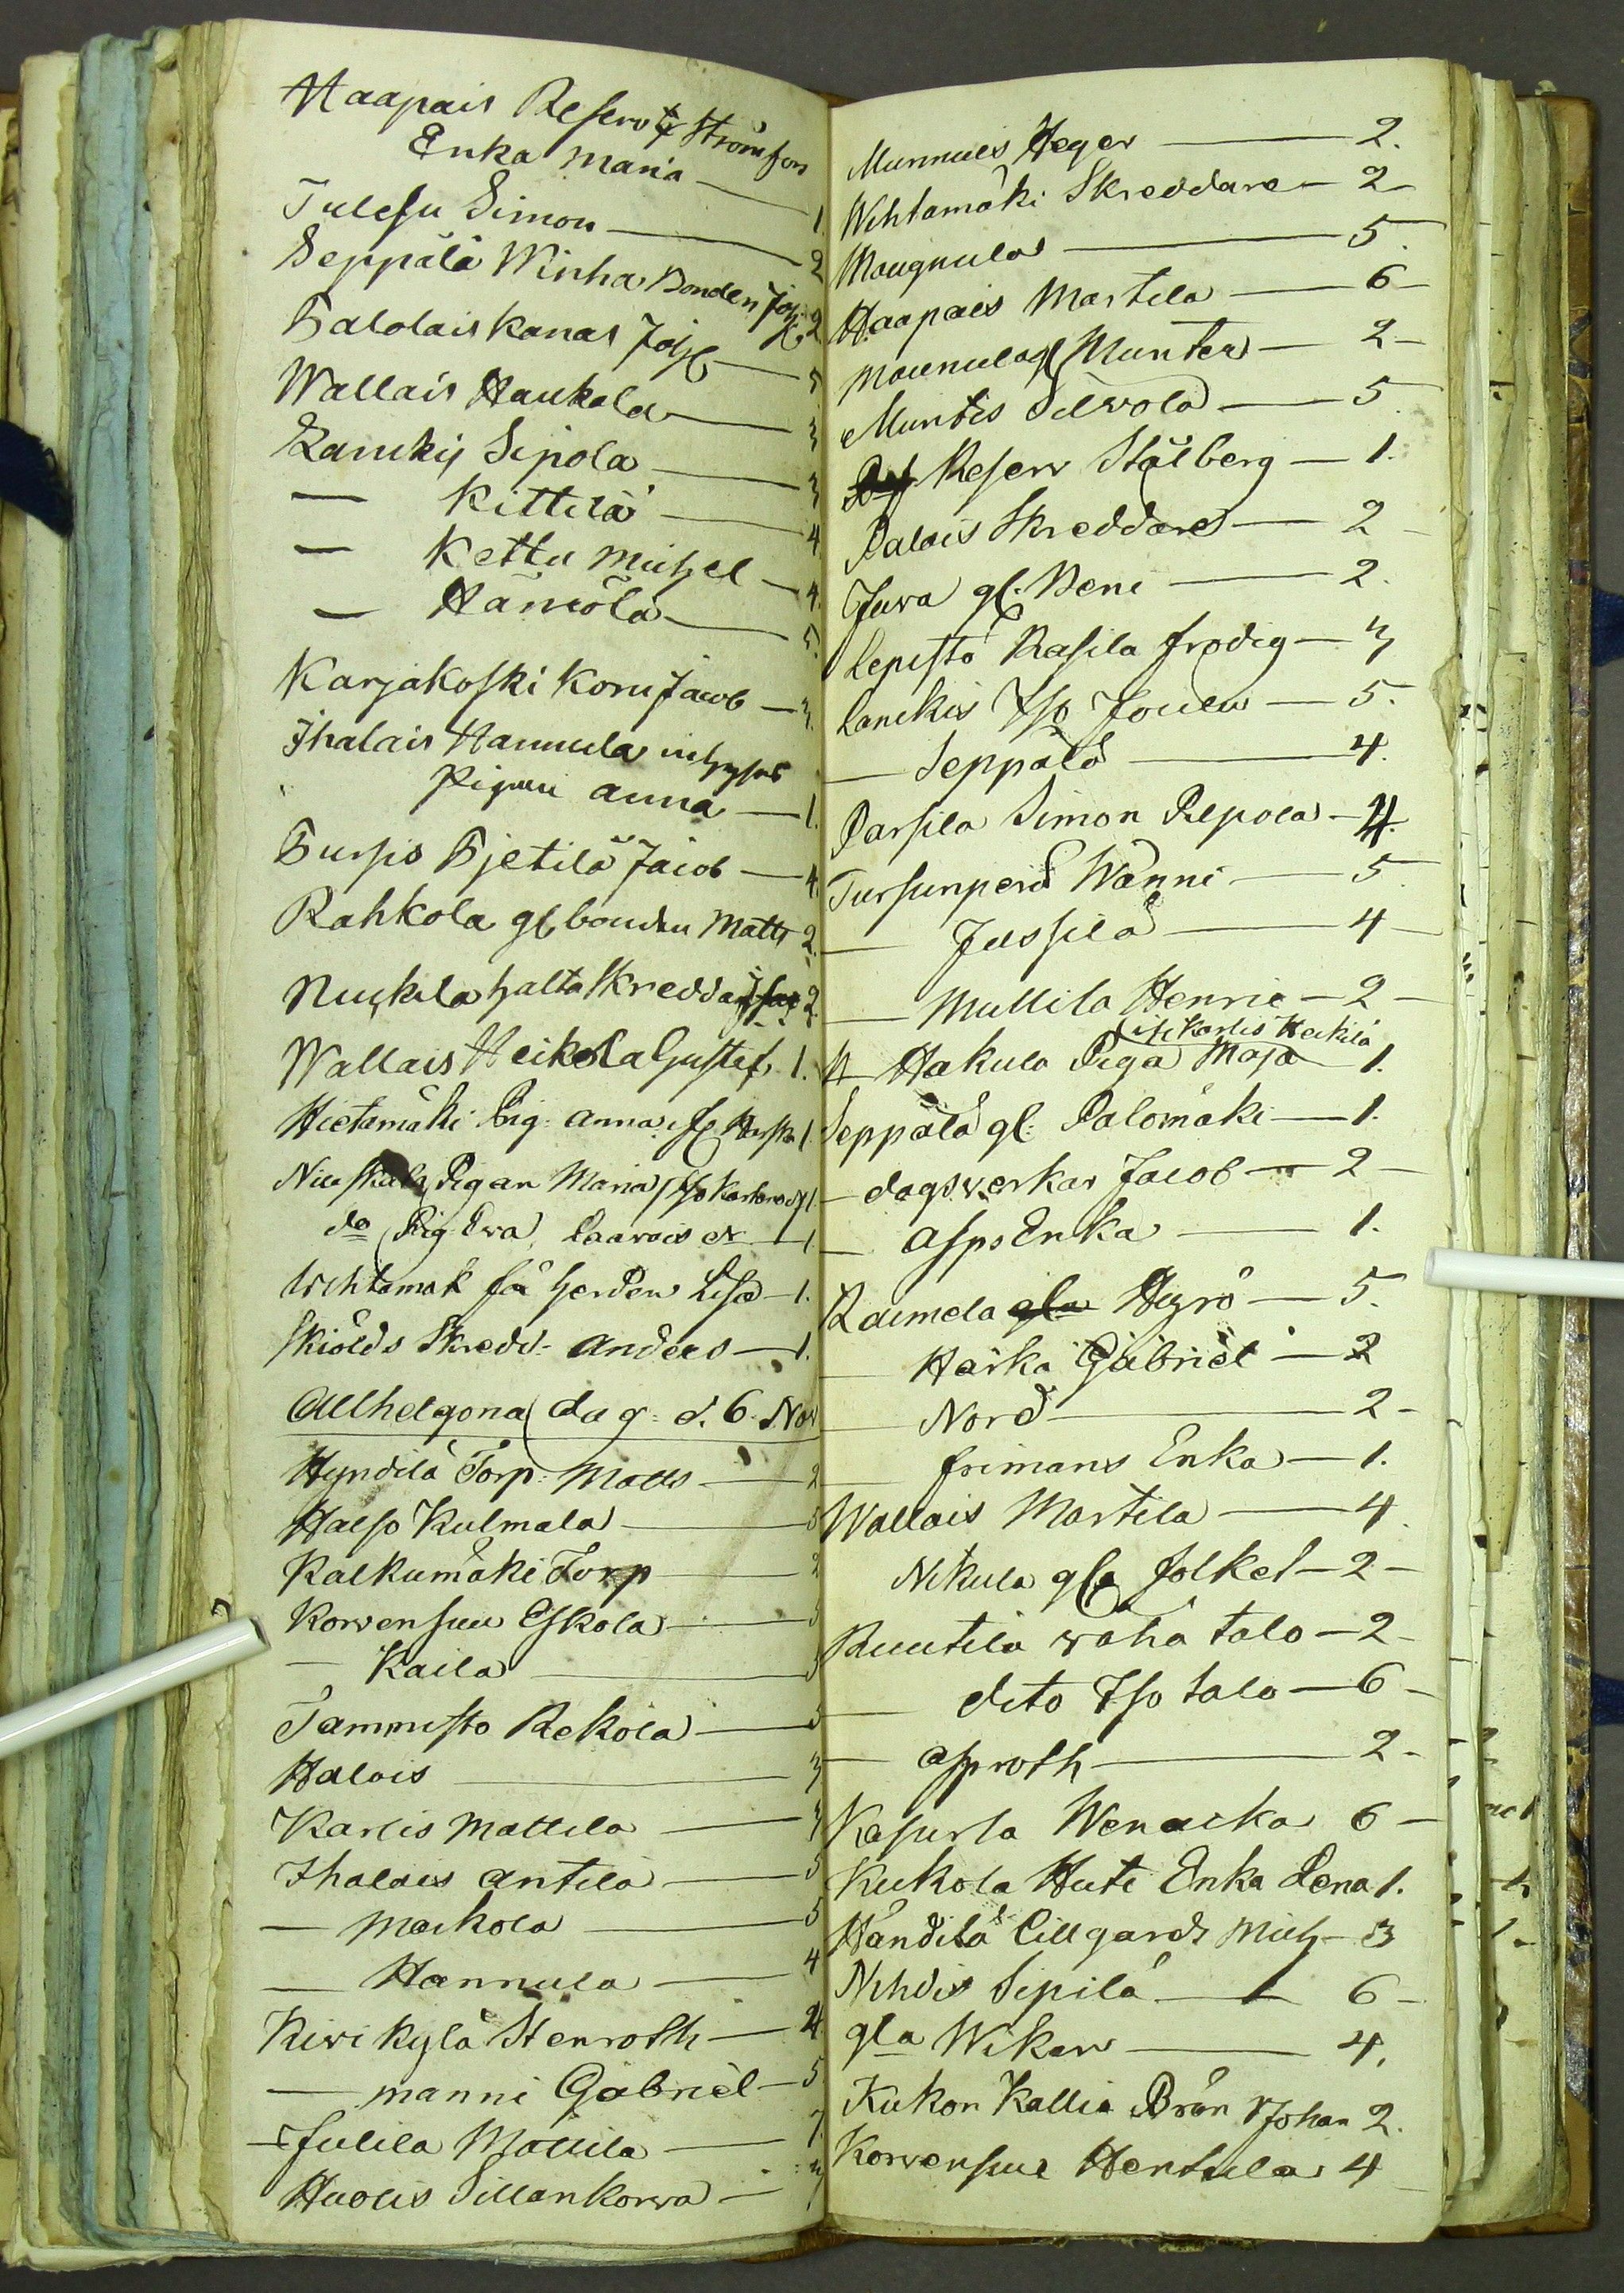 Haapais Reserv Strömfors
Enka Maria — 1.
Tulesu Simon — 2
Seppälä Winha Bonden Joh: K. 2
Palolais kanas Joh — 5
Wallais Haukola — 3
Lanckis Sipola — 3
— Kittilä — 4
— Kettu Michel — 4.
— Hämölä — 5.
Karjakoski Koru Jacob — 3.
Ihalais Hannula inhyses
Pigan Anna — 1.
Pursis Pjetilä Jacob — 4
Rahkola gl bonden Matts 2.
Nuskila halta Skreddar 2
Wallais Heikola Gustef 1.
Hietamäki Pig: Anna 1.
Niuskala Pigan Maria 1.
do Pig Ewa, Laarois 1
Wihtamäk få herden Lisa — 1.
Skiölds Skredd: Anders — 1.
Allhelgona dag: d. 6. Nov
Hyndilä Torp: Matts — 2
Halso Kulmala
Kalkumäki Torp — 2
Korvensuu Eskola
— Kaila
Tammisto Rekola
Halois — 3
Karlis Mattila
Ihalais Antila — 5
— Markola — 5
— Hannula — 4
Kivikylä Stenroth — 4
— Manni Gabriel — 5
— Julila Mattila — 7
Huolis Sillankorva — 3
Munnues Heger — 2.
Wihtamäki Skreddare — 2 —
Maugnula — 5.
Haapais Martila — 6 —
Maunula gl Munter — 2 —
Muntis Silvola — 5.
Reserv Stålberg — 1.
Palais Skreddare — 2 —
Juva gl. Beni — 2.
Lepistö Rasila frodig — 3
Lanckis Iso Jouen — 5.
— Seppälä — 4.
Parsila Simon Pelpola — 4.
Tursunperä Wänni — 5.
— Jussila — 4 —
— Mullila Henric — 2 —
Karlis Heikilä
— Hakula Piga Maja — 1.
Seppälä gl: Palomäki — 1.
— dagsverkar Jacob — 2 —
— Asps Enka — 1.
Raimela gla Hyrö — 5.
— Harka Gabriel — 2
— Nord — 2 —
— frimans Enka — 1.
Wallais Martila — 4.
Nikula gla folket — 2 —
Ruutila wähä talo — 2 —
— dito Iso talo — 6 —
— Asproth — 2 —
Kasurla Wenacka 6 —
Kukola Huti Enka Lena 1.
Händilä Lillgards Mich — 3
Nihdis Sipilä — 6 —
gla Wiken — 4.
Kukon Kallio Brån Johan 2.
Korvensuu Hentula 4